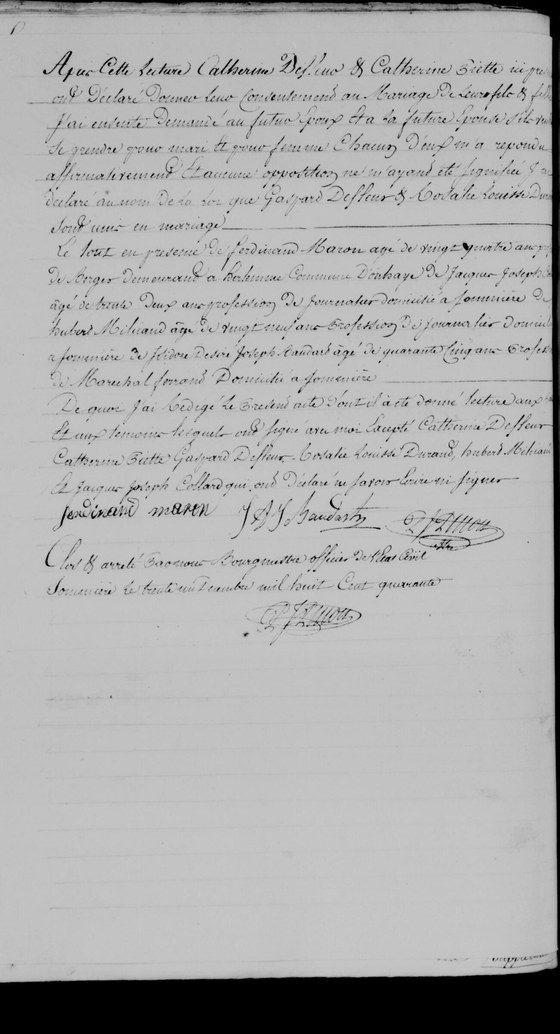 Apres Cette Lecture Catherine Defleur & Catherine Piette ici pre
ont Déclaré Donner leur Consentement au Mariage de Leurs fils & fille
J'ai ensuite Demandé au futur Epoux Et a La future Epouse s'ils veu
Se prendre pour mari Et pour femme Chacun D'eux m'a repondu
affirmativement Et aucune opposition ne m'ayant été signifiée J'ai
declaré au nom De La Loi que Gaspard Defleur & Rosalie Louise Dura
Sont unis en mariage
Le tout en presence de ferdinand Maron agé de vingt quatre ans pro
De Berger demeurant a herhenne Commune Donhaye De Jacques Joseph
âgé de trente Deux ans profession De Journalier domicilié a fominiere De
hubert Milicand âgé De vingt neuf ans Profession De journalier Domicili
a fominiere De Isidore Desiré Joseph Baudard âgé de quarante Cinq ans Profes
De Marechal ferrand Domicilié a fominière
De quoi J'ai Redegé Le Present acte Dont il a été donné lecture aux
Et aux temoins lesquels ont signé avec moi Excepté Catherine Defleur
Catherine Piette Gaspard Defleur Rosalie Louise Durand, hubert Milicand
Et Jacques Joseph Collard qui ont Déclaré ne savoir Ecrire ni signer
ferdinand maron J D J Baudart
Clos & arreté Par nous Bourgmestre officier de l'Etat Civil
a fominière Le trente un Decembre mil huit Cent quarante